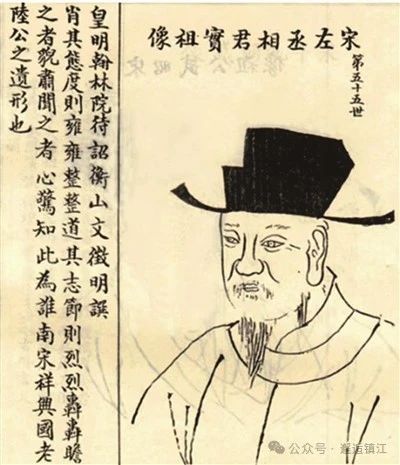 宋左丞相君實祖像
第五十五世
皇明翰林院待詔衡山文徵明譔
肖其態度則雍雍整整道其志節則烈烈轟轟瞻
之者貌肅聞之者心驚知此為誰南宋祥興國老
陸公之遺形也
公众号·邂逅镇江